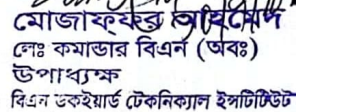 মোজাফফর আহমেদ
লেঃ কমান্ডার বিএন (অবঃ)
উপাধ্যক্ষ
বিএন ডকইয়ার্ড টেকনিক্যাল ইন্সটিটিউট